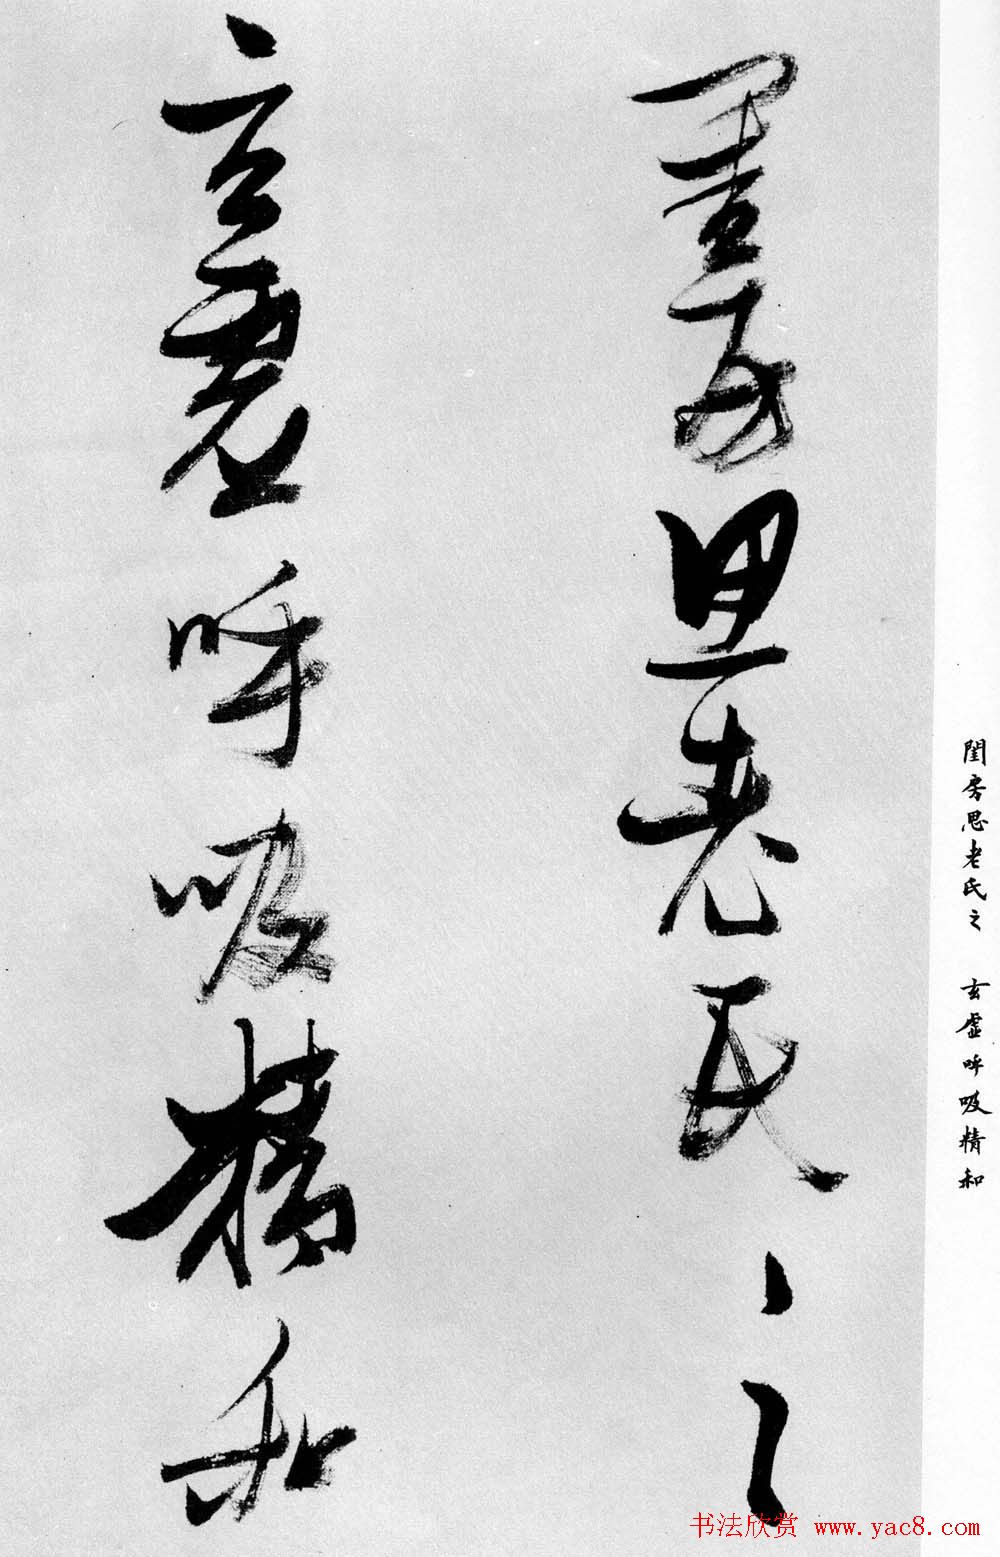 閨房思老氏之
玄虛呼吸精和
閨房思老氏之 玄虛呼吸精和
书法欣赏 www.yac8.com